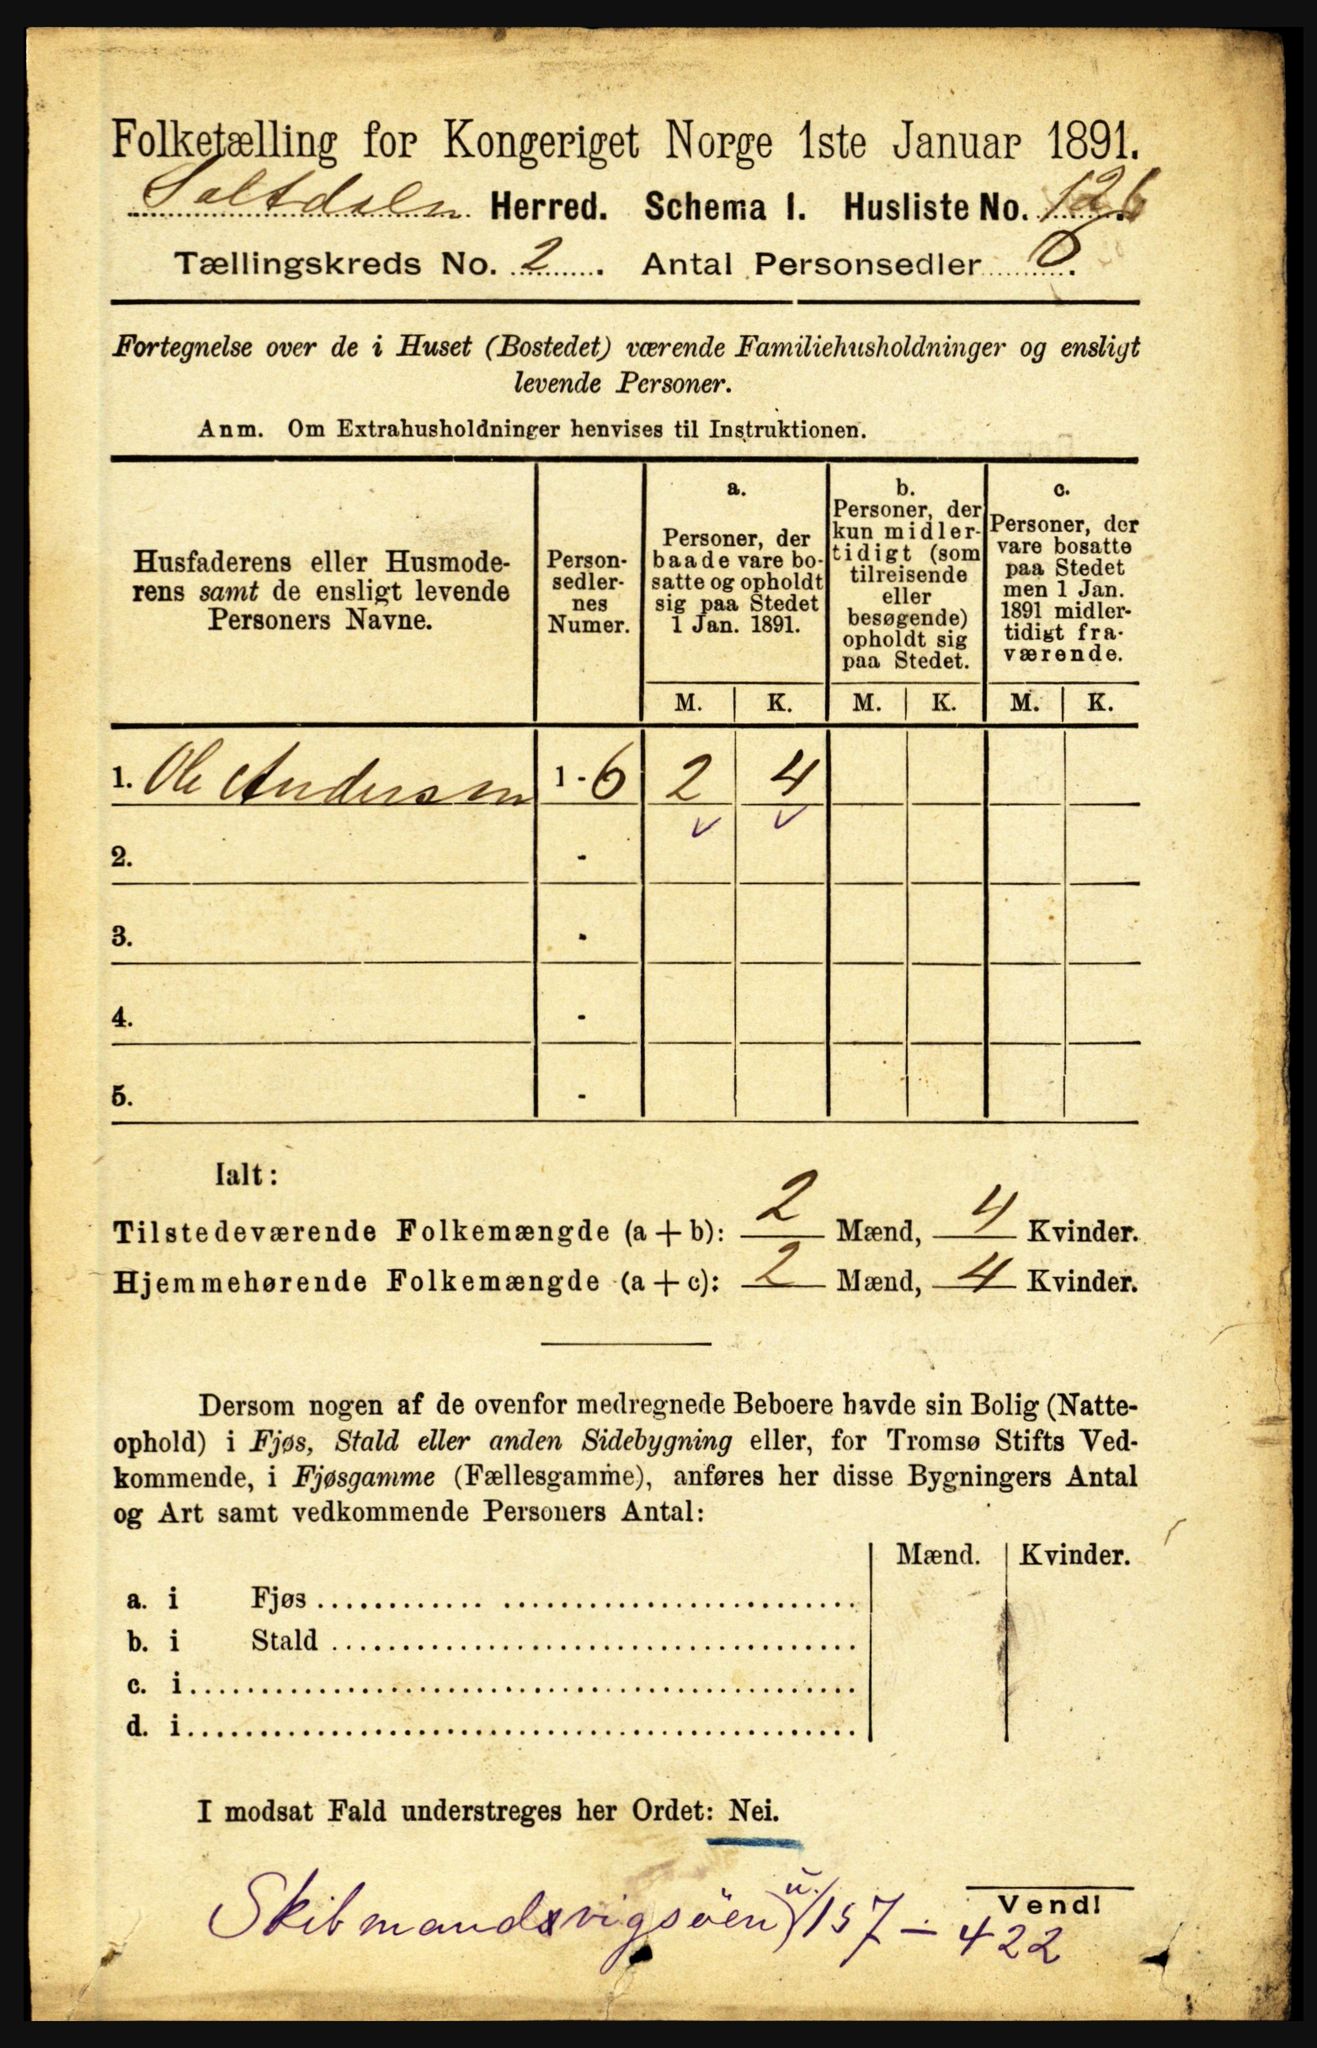 Folketælling for Kongeriget Norge 1ste Januar 1891.
Saltdalen Herred. Schema 1. Husliste No. 126
Tællingskreds No. 2. Antal Personsedler 6.
Fortegnelse over de i Huset (Bostedet) værende Familiehusholdninger og ensligt
levende Personer.
Anm. Om Extrahusholdninger henvises til Instruktionen.
Husfaderens eller Husmode-
rens samt de ensligt levende
Personers Navne.
Person-
sedler-
nes
Numer.
a.
Personer, der
baade vare bo-
satte og opholdt
sig paa Stedet
1 Jan. 1891.
b.
Personer, der
kun midler-
tidigt (som
tilreisende
eller
besøgende)
opholdt sig
paa Stedet.
c.
Personer, der
vare bosatte
paa Stedet
men 1 Jan.
1891 midler-
tidigt fra-
værende.
M. K. M. K. M. K.
1. Ole Andersen 1-6 2 4
2. -
3. -
4. -
5. -
Ialt:
Tilstedeværende Folkemængde (a + b): 2 Mænd, 4 Kvinder.
Hjemmehørende Folkemængde (a + c): 2 Mænd, 4 Kvinder.
Dersom nogen af de ovenfor medregnede Beboere havde sin Bolig (Natte-
ophold) i Fjøs, Stald eller anden Sidebygning eller, for Tromsø Stifts Ved-
kommende, i Fjøsgamme (Fællesgamme), anføres her disse Bygningers Antal
og Art samt vedkommende Personers Antal:
Mænd. Kvinder.
a. i Fjøs
b. i Stald
c. i
d. i
I modsat Fald understreges her Ordet: Nei.
Vend!
Skibmandsvigsöen u/157 - 422